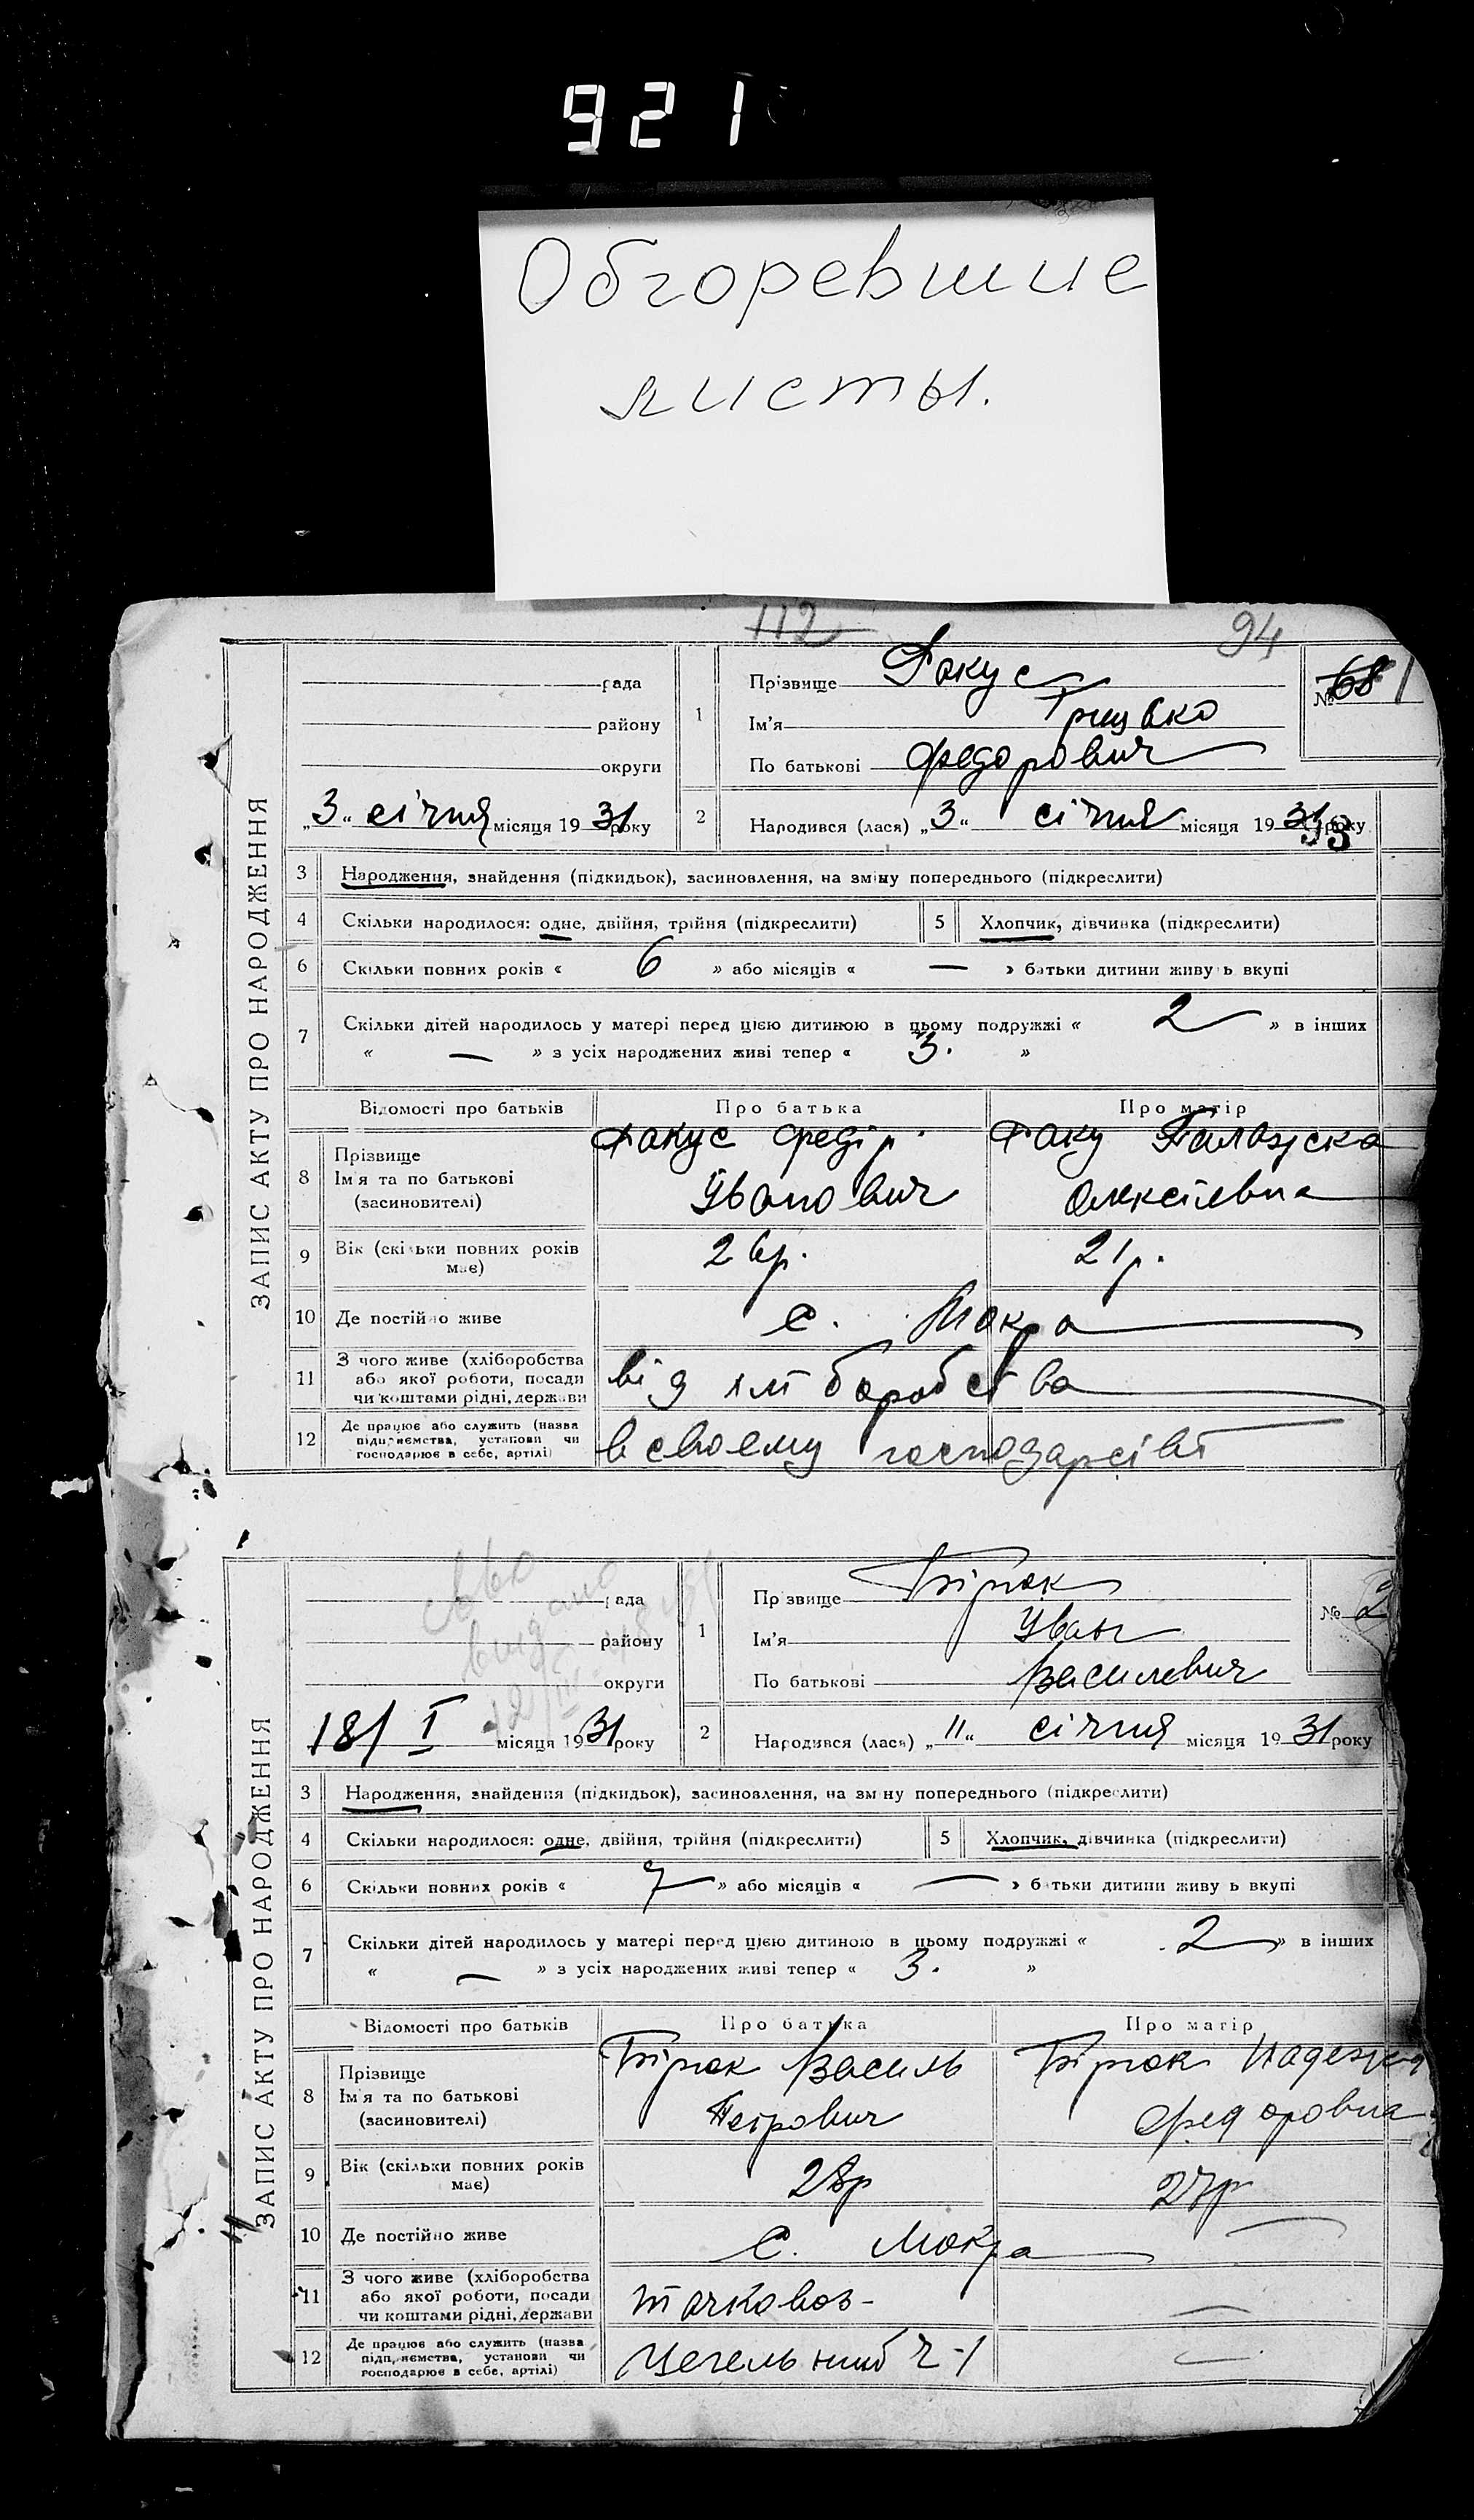 921
Обгоревшие
листы.
112 94
рада
району
округи
"3" січня місяця 1931 року
1
Прізвище Факус
Ім'я Грицько
По батькові Федорович
№ 68 1
2
Народився (лася) "3" січня місяця 1931 року
93
ЗАПИС АКТУ ПРО НАРОДЖЕННЯ
3 Народження, знайдення (підкидьок), засиновлення, на зміну попереднього (підкреслити)
4 Скільки народилося: одне, двійня, трійня (підкреслити) 5 Хлопчик, дівчинка (підкреслити)
6 Скільки повних років « 6 » або місяців « — » батьки дитини живуть вкупі
7 Скільки дітей народилось у матері перед цією дитиною в цьому подружжі « 2 » в інших
« — » з усіх народжених живі тепер « 3. »
Відомості про батьків Про батька Про матір
8 Прізвище
Ім'я та по батькові
(засиновителі)
Факус Федір
Іванович
Факу
Олексіевна
9 Вік (скільки повних років
має) 26р. 21р.
10 Де постійно живе с. Мокра
11 З чого живе (хліборобства
або якої роботи, посади
чи коштами рідні, держави
від хліборобства
12 Де працює або служить (назва
підприємства, установи чи
господарює в себе, артілі)
в своему господарстві
видано
рада
району
округи
18/I місяця 1931 року
1
Прізвище Бірюк
Ім'я Иван
По батькові Василевич
№ 2
2
Народився (лася) "11" січня місяця 1931 року
ЗАПИС АКТУ ПРО НАРОДЖЕННЯ
3 Народження, знайдення (підкидьок), засиновлення, на зміну попереднього (підкреслити)
4 Скільки народилося: одне, двійня, трійня (підкреслити) 5 Хлопчик, дівчинка (підкреслити)
6 Скільки повних років « 7 » або місяців « — » батьки дитини живуть вкупі
7 Скільки дітей народилось у матері перед цією дитиною в цьому подружжі « 2 » в інших
« — » з усіх народжених живі тепер « 3. »
Відомості про батьків Про батька Про матір
8 Прізвище
Ім'я та по батькові
(засиновителі)
Бірюк Василь
Петрович
Бірюк Надежда
Федоровна
9 Вік (скільки повних років
має) 28р 27р
10 Де постійно живе с. Мокра —
11 З чого живе (хліборобства
або якої роботи, посади
чи коштами рідні, держави
тачковоз - —
12 Де працює або служить (назва
підприємства, установи чи
господарює в себе, артілі)
Ч-1 —